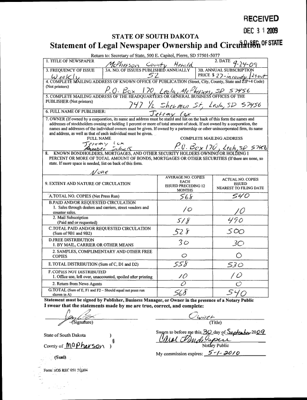 RECEIVED
DEC 31 2009
STATE OF SOUTH DAKOTA
Statement of Legal Newspaper Ownership and Circulation
OF STATE
Return to: Secretary of State, 500 E. Capitol, Pierre, SD 57501-5077
1. TITLE OF NEWSPAPER
McPherson County Herald
2. DATE
9-24-09
3. FREQUENCY OF ISSUE
Weekly
3A. NO. OF ISSUES PUBLISHED ANNUALLY
52
3B. ANNUAL SUBSCRIPTION PRICE $
4. COMPLETE MAILING ADDRESS OF KNOWN OFFICE OF PUBLICATION (Street, City, County, State and ZIP+4 Code) (Not printers)
P O Box 170 Leola, McPherson, SD 57456
5. COMPLETE MAILING ADDRESS OF THE HEADQUARTERS OR GENERAL BUSINESS OFFICES OF THE PUBLISHER (Not printers)
747 ½ Sherman St, Leola, SD 57456
6. FULL NAME OF PUBLISHER:
Jeremy Cox
7. OWNER (If owned by a corporation, its name and address must be stated and list on the back of this form the names and addresses of stockholders owning or holding 1 percent or more of total amount of stock. If not owned by a corporation, the names and addresses of the individual owners must be given. If owned by a partnership or other unincorporated firm, its name and address, as well as that of each individual must be given.
FULL NAME
COMPLETE MAILING ADDRESS
Jeremy Cox
P O Box 170, Leola, SD 57456
8. KNOWN BONDHOLDERS, MORTGAGES, AND OTHER SECURITY HOLDERS OWNING OR HOLDING 1 PERCENT OR MORE OF TOTAL AMOUNT OF BONDS, MORTGAGES OR OTHER SECURITIES (If there are none, so state. If more space is needed, list on back of this form.
None
9. EXTENT AND NATURE OF CIRCULATION
AVERAGE NO. COPIES EACH ISSUED PRECEDING 12 MONTHS
ACTUAL NO. COPIES ISSUED NEAREST TO FILING DATE
A. TOTAL NO. COPIES (Net Press Run)
568
540
B. PAID AND/OR REQUESTED CIRCULATION
1. Sales through dealers and carriers, street vendors and counter sales.
10
10
2. Mail Subscription (Paid and or requested)
518
490
C. TOTAL PAID AND/OR REQUESTED CIRCULATION (Sum of 9B1 and 9B2)
528
500
D. FREE DISTRIBUTION
1. BY MAIL, CARRIER OR OTHER MEANS
30
30
2. SAMPLES, COMPLIMENTARY AND OTHER FREE COPIES
0
0
E. TOTAL DISTRIBUTION (Sum of C, D1 and D2)
558
530
F. COPIES NOT DISTRIBUTED
1. Office use, left over, unaccounted, spoiled after printing
10
10
2. Return from News Agents
0
0
G. TOTAL (Sum of E, F1 and F2 - Should equal net press run shown in A)
568
540
Statement must be signed by Publisher, Business Manager, or Owner in the presence of a Notary Public
I swear that the statements made by me are true, correct, and complete:
(Signature)
Owner
(Title)
State of South Dakota )
County of McPherson )
(Seal)
Sworn to before me this 30 day of September 2009
Notary Public
My commission expires: 5-1-2010